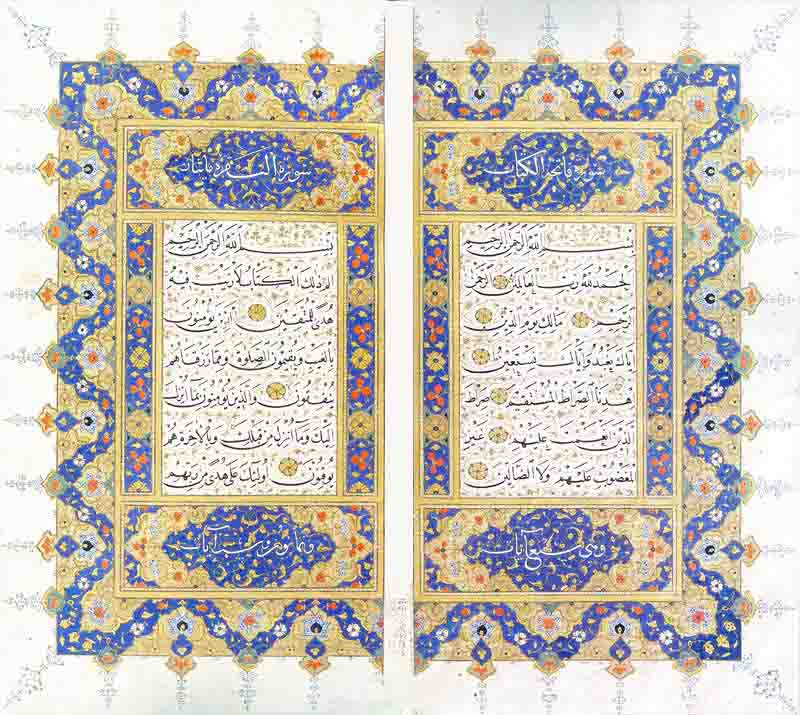 سورة فاتحة الكتاب
بسم الله الرحمن الرحيم
الحمد لله رب العالمين الرحمن
الرحيم مالك يوم الدين
إياك نعبد وإياك نستعين
اهدنا الصراط المستقيم صراط
الذين أنعمت عليهم غير
المغضوب عليهم ولا الضالين
وهي سبع آيات
سورة البقرة مائتان
بسم الله الرحمن الرحيم
الم ذلك الكتاب لا ريب فيه
هدى للمتقين الذين يؤمنون
بالغيب ويقيمون الصلوة ومما رزقناهم
ينفقون والذين يؤمنون بما أنزل
إليك وما أنزل من قبلك وبالآخرة هم
يوقنون أولئك على هدى من ربهم
وثمانون وست آيات